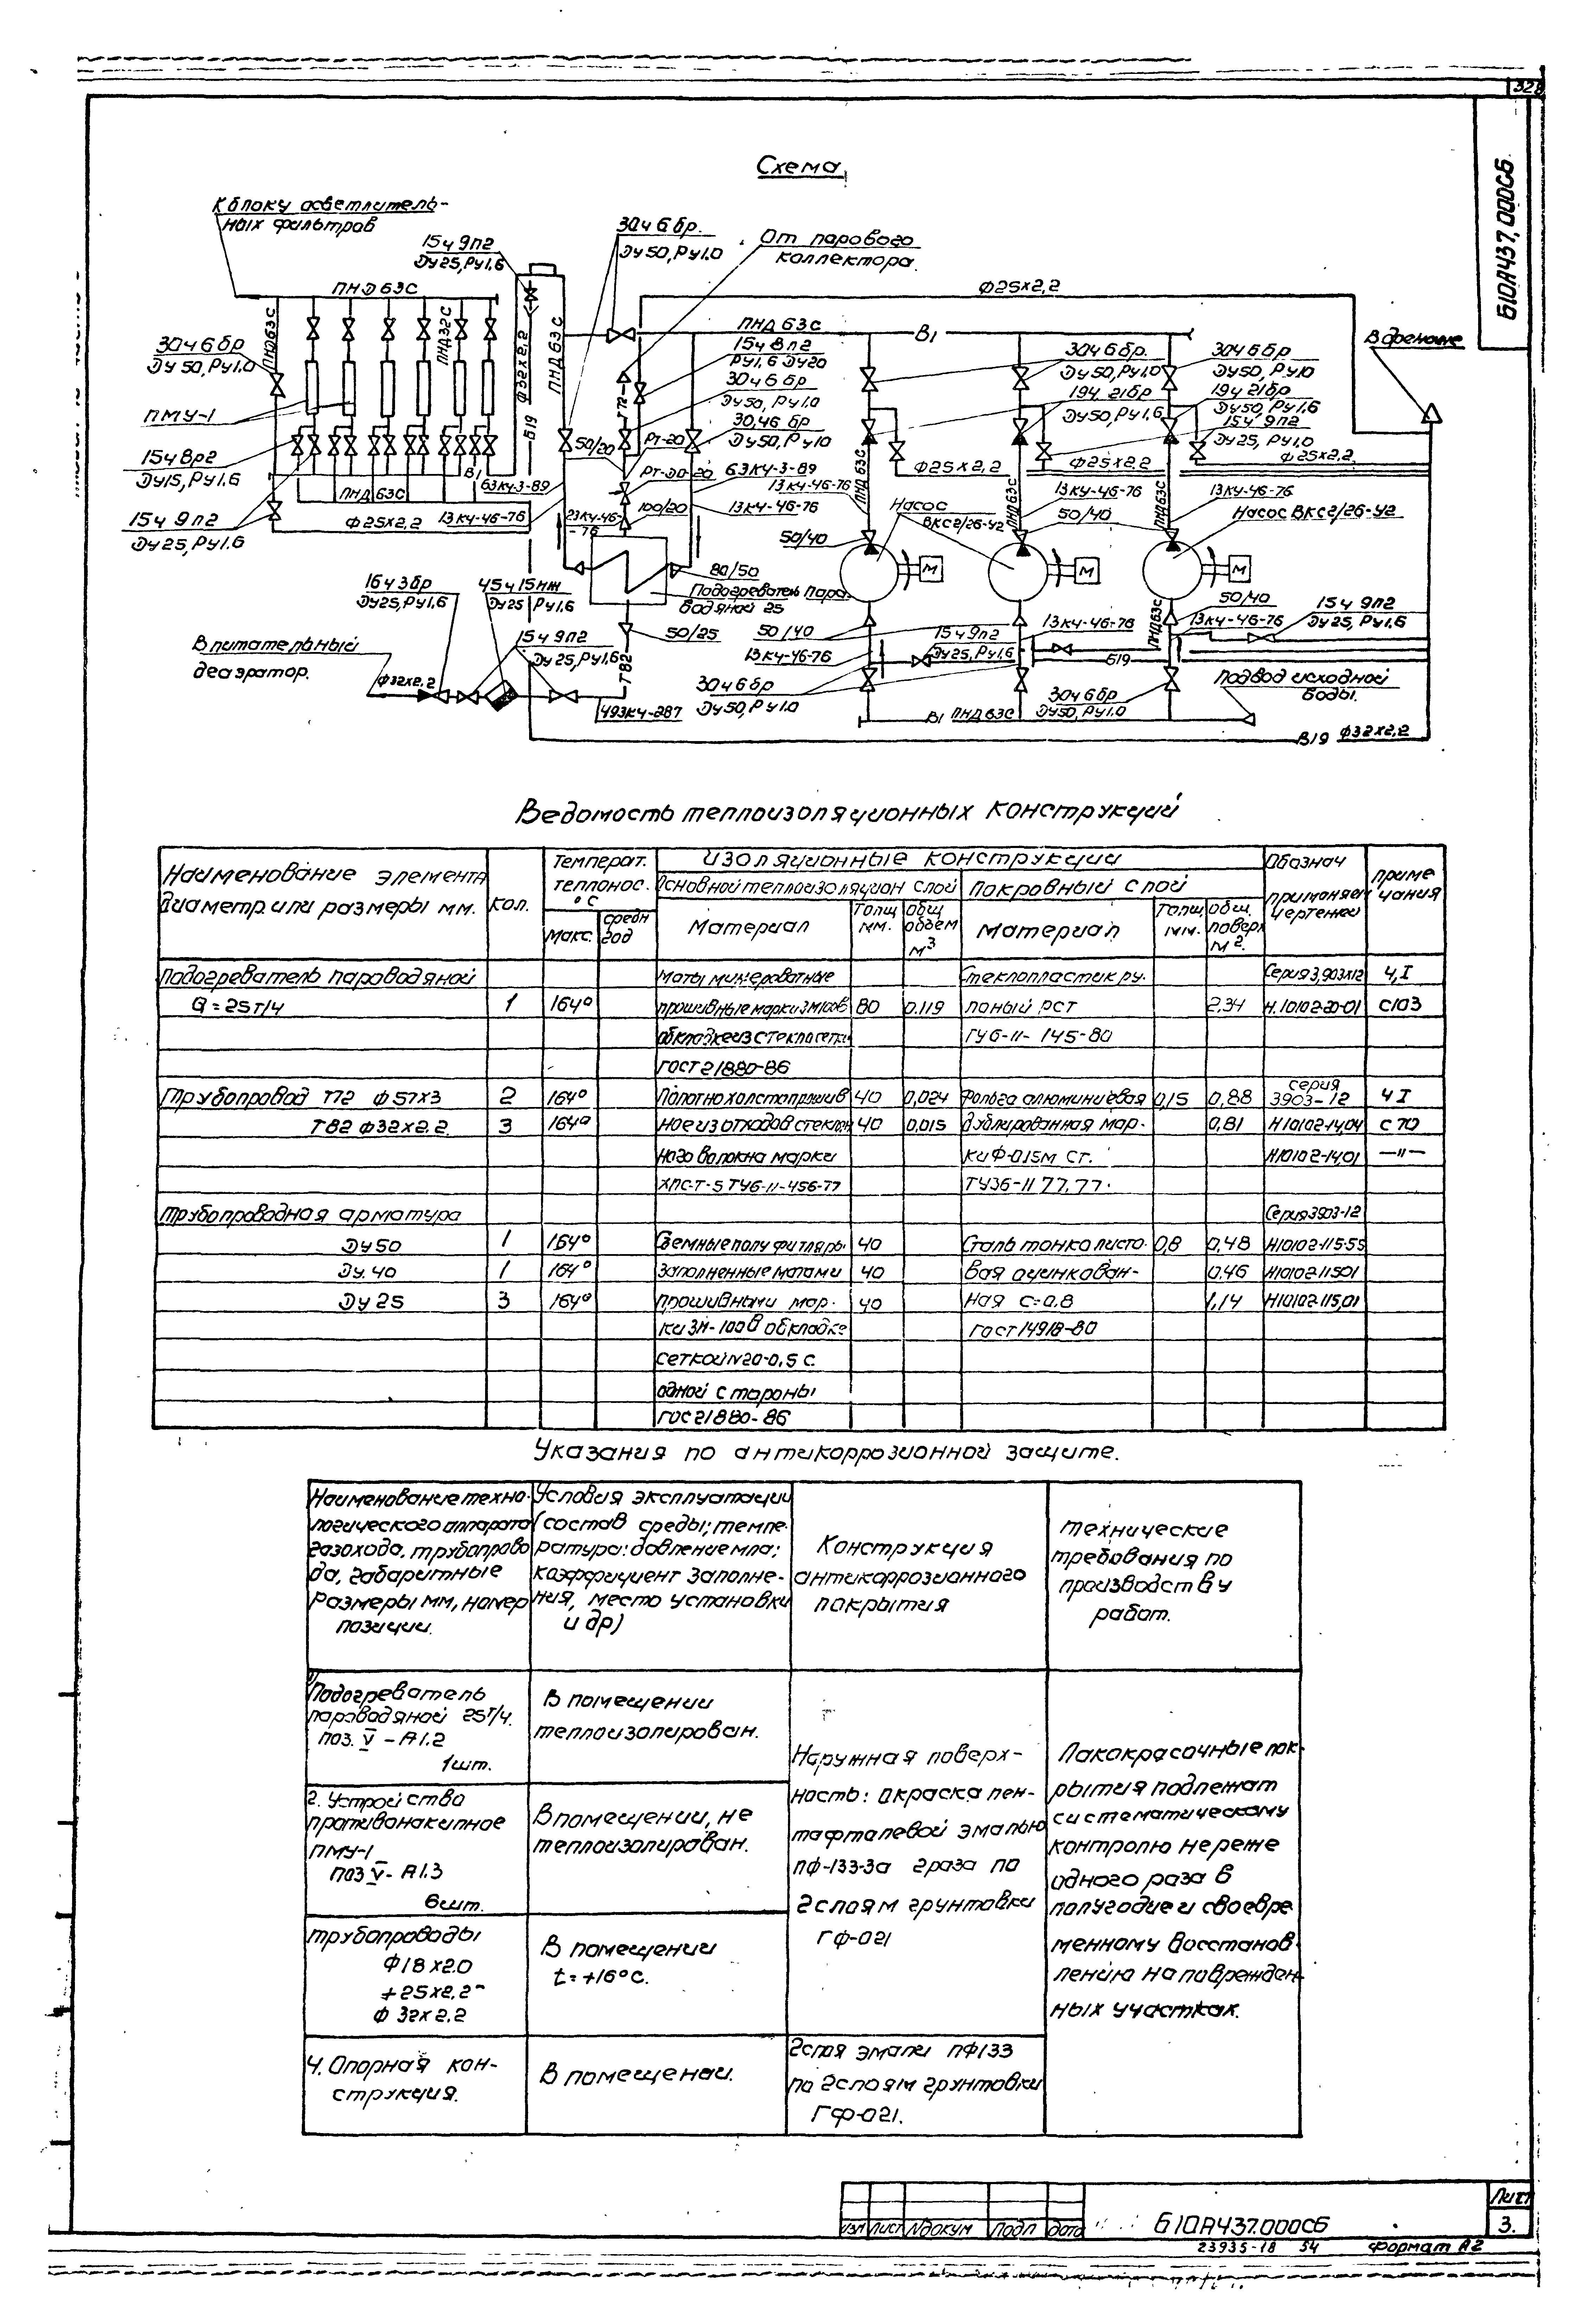 328
Б10А437.000СБ
Схема
К блоку осветлитель-
ных фильтров
15ч 9п2
Ду25, Ру1,6
30ч 6 бр.
Ду50, Ру1.0
От парового
коллектора.
В дренаж
ПНД 63С
Ф25х2,2
ПНД 63С
В1
ПНД63С
ПНД32С
Ф32х2,2
ПНД 63С
30ч 6 бр
Ду 50, Ру1.0
ПМУ-1
15ч 8р2
Ду15, Ру1,6
15ч 9п2
Ду 25, Ру1,6
15ч 8п2
Ру1,6 Ду20
30ч 6 бр
Ду50, Ру1.0
30ч6 бр
Ду50, Ру10
30ч 6 бр.
Ду50, Ру1.0
19ч 21бр
Ду50, Ру1,6
30ч 6 бр
Ду50, Ру10
19ч 21бр
Ду50, Ру1,6
15ч 9п2
Ду 25, Ру1.0
Т72
В19
50/20
Рт-20
Рт-20-20
100/20
63КЧ-3-89
13КЧ-46-76
63КЧ-3-89
13КЧ-46-76
23КЧ-46-
-76
13КЧ-46-76
ПНД 63С
В1
ПНД 63С
Ф25х2,2
Ф25х2,2
Ф25х2,2
Ф25х2,2
ПНД 63С
ПНД 63С
13КЧ-46-76
13КЧ-46-76
50/40
50/40
Насос
ВКС2/26-У2
Насос ВКС2/26-У2
М
М
М
80/50
Подогреватель паро-
водяной 25
50/25
Т82
16ч 3бр
Ду25, Ру1,6
45ч 15нж
Ду25 Ру1,6
15ч 9п2
Ду 25, Ру1,6
В питательный
деаэратор.
Ф32х2,2
493КЧ-287
50/40
13КЧ-46-76
30ч 6 бр
Ду50, Ру1.0
15ч 9п2
Ду 25, Ру1,6
13КЧ-46-76
ПНД63С
50/40
13КЧ-46-76
15ч 9п2
Ду 25, Ру1,6
В19
30ч 6бр
Ду50, Ру1.0
Подвод исходной
воды.
В1 ПНД 63С
В19 Ф32х2,2
Ведомость теплоизоляционных конструкций
Наименование элемента
Диаметр. или размеры мм.
кол.
Температ.
теплонос.
°С
Макс.
средн
год
Изоляционные конструкции
Основной теплоизоляцион слой
Покровный слой
Материал
Толщ
мм.
Общ
объем
м3
Материал
Толщ
мм.
общ.
поверх
м2.
Обознач
применяем
чертежей
приме
чания
Подогреватель пароводяной
маты минероватные
Стеклопластик ру-
Серия 3,903х12
4,I
Q = 25т/ч
1
164°
прошивные марки ЗМ100в
80
0.119
лоный рст
2.34
Н.10102-20-01
С103
обкладке из стеклосетки
ТУ6-11- 145-80
ГОСТ 21880-86
Трубопровод Т72 Ф57х3
2
164°
Полотно холстопрошив
40
0,024
Фольга алюминиевая
0,15
0,88
серия
3903-12
4 I
Т82 Ф32х2.2.
3
164°
ное из отходов стеклян
40
0,015
дублированная мар-
0,81
Н10102-14,04
С 70
ного волокна марки
ки Ф-015М ст.
Н10102-14,01
—"—
ХПС-Т-5 ТУ6-11-456-77
ТУ36-11 77.77.
Трубопроводная арматура
Серия3903-12
Ду50
1
164°
Съемные полуфутляры
40
Сталь тонколисто-
0,8
0,48
Н10102-115-55
Ду.40
1
164°
заполненные матами
40
вая оцинкован-
0.46
Н10102-11501
Ду 25
3
164°
прошивными мар.
40
ная с=0.8
1,14
Н10102-115,01
ки ЗМ-100В обкладке
ГОСТ 14918-80
сеткой №20-0,5 с
одной стороны
ГОС21880-86
Указания по антикоррозионной защите.
Наименование техно-
логического аппарата
газохода, трубопрово
да, габаритные
размеры мм, номер
позиции.
Условия эксплуатации
(состав среды; темпе-
ратура: давление мпа;
коэффициент заполне-
ния, место установки
и др)
Конструкция
антикоррозионного
покрытия
Технические
требования по
производству
работ.
1)
Подогреватель
пароводяной 25т/ч.
поз. V - А1.2
1шт.
В помещении
теплоизолирован.
Наружная поверх-
ность: окраска пен-
тафталевой эмалью
ПФ-133-3а 2раза по
2слоям грунтовки
ГФ-021
Лакокрасочные пок-
рытия подлежат
систематическому
контролю не реже
одного раза в
полугодие и своевре
менному восстанов-
лению на поврежден-
ных участках.
2. Устройство
противонакипное
ПМУ-1
поз V- А1.3
6шт.
В помещении, не
теплоизолирован.
Трубопроводы
Ф18х2.0
+25х2,2-
Ф 32х2,2
В помещении
t=+16°С.
4. Опорная кон-
струкция.
В помещении.
2слоя эмали ПФ133
по 2слоям грунтовки
ГФ-021.
Изм
Лист
№докум
Подп
Дата
Б10А437.000СБ
Лист
3.
23935-18 54
Формат А2